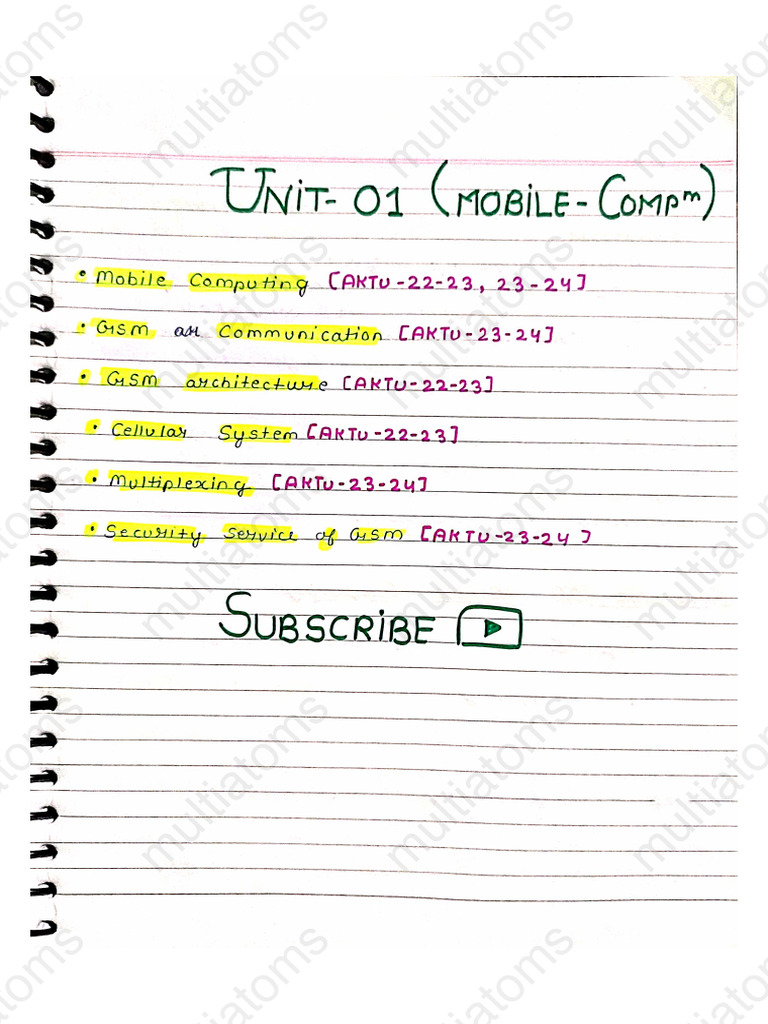 UNIT-01 (MOBILE-COMPᵐ)
• Mobile Computing [AKTU-22-23, 23-24]
• GSM as Communication [AKTU-23-24]
• GSM architecture [AKTU-22-23]
• Cellular System [AKTU-22-23]
• Multiplexing [AKTU-23-24]
• Security Service of GSM [AKTU-23-24]
SUBSCRIBE
multiatoms